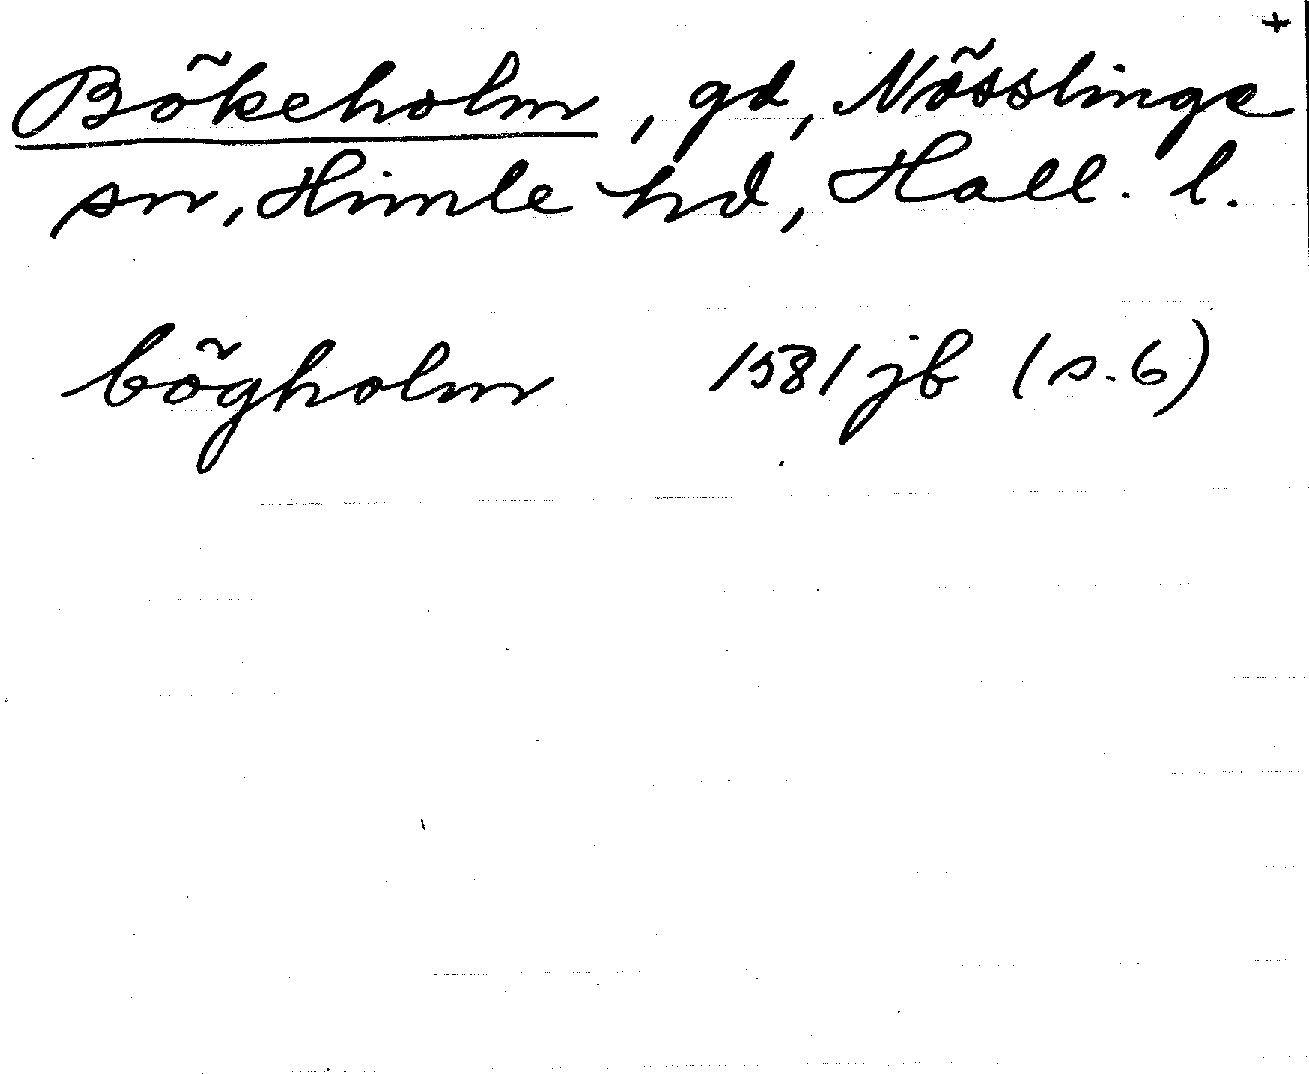 +
Bökeholm, gd, Nösslinge
sn, Himle hd, Hall. l.
bögholm 1581 jb (s. 6)